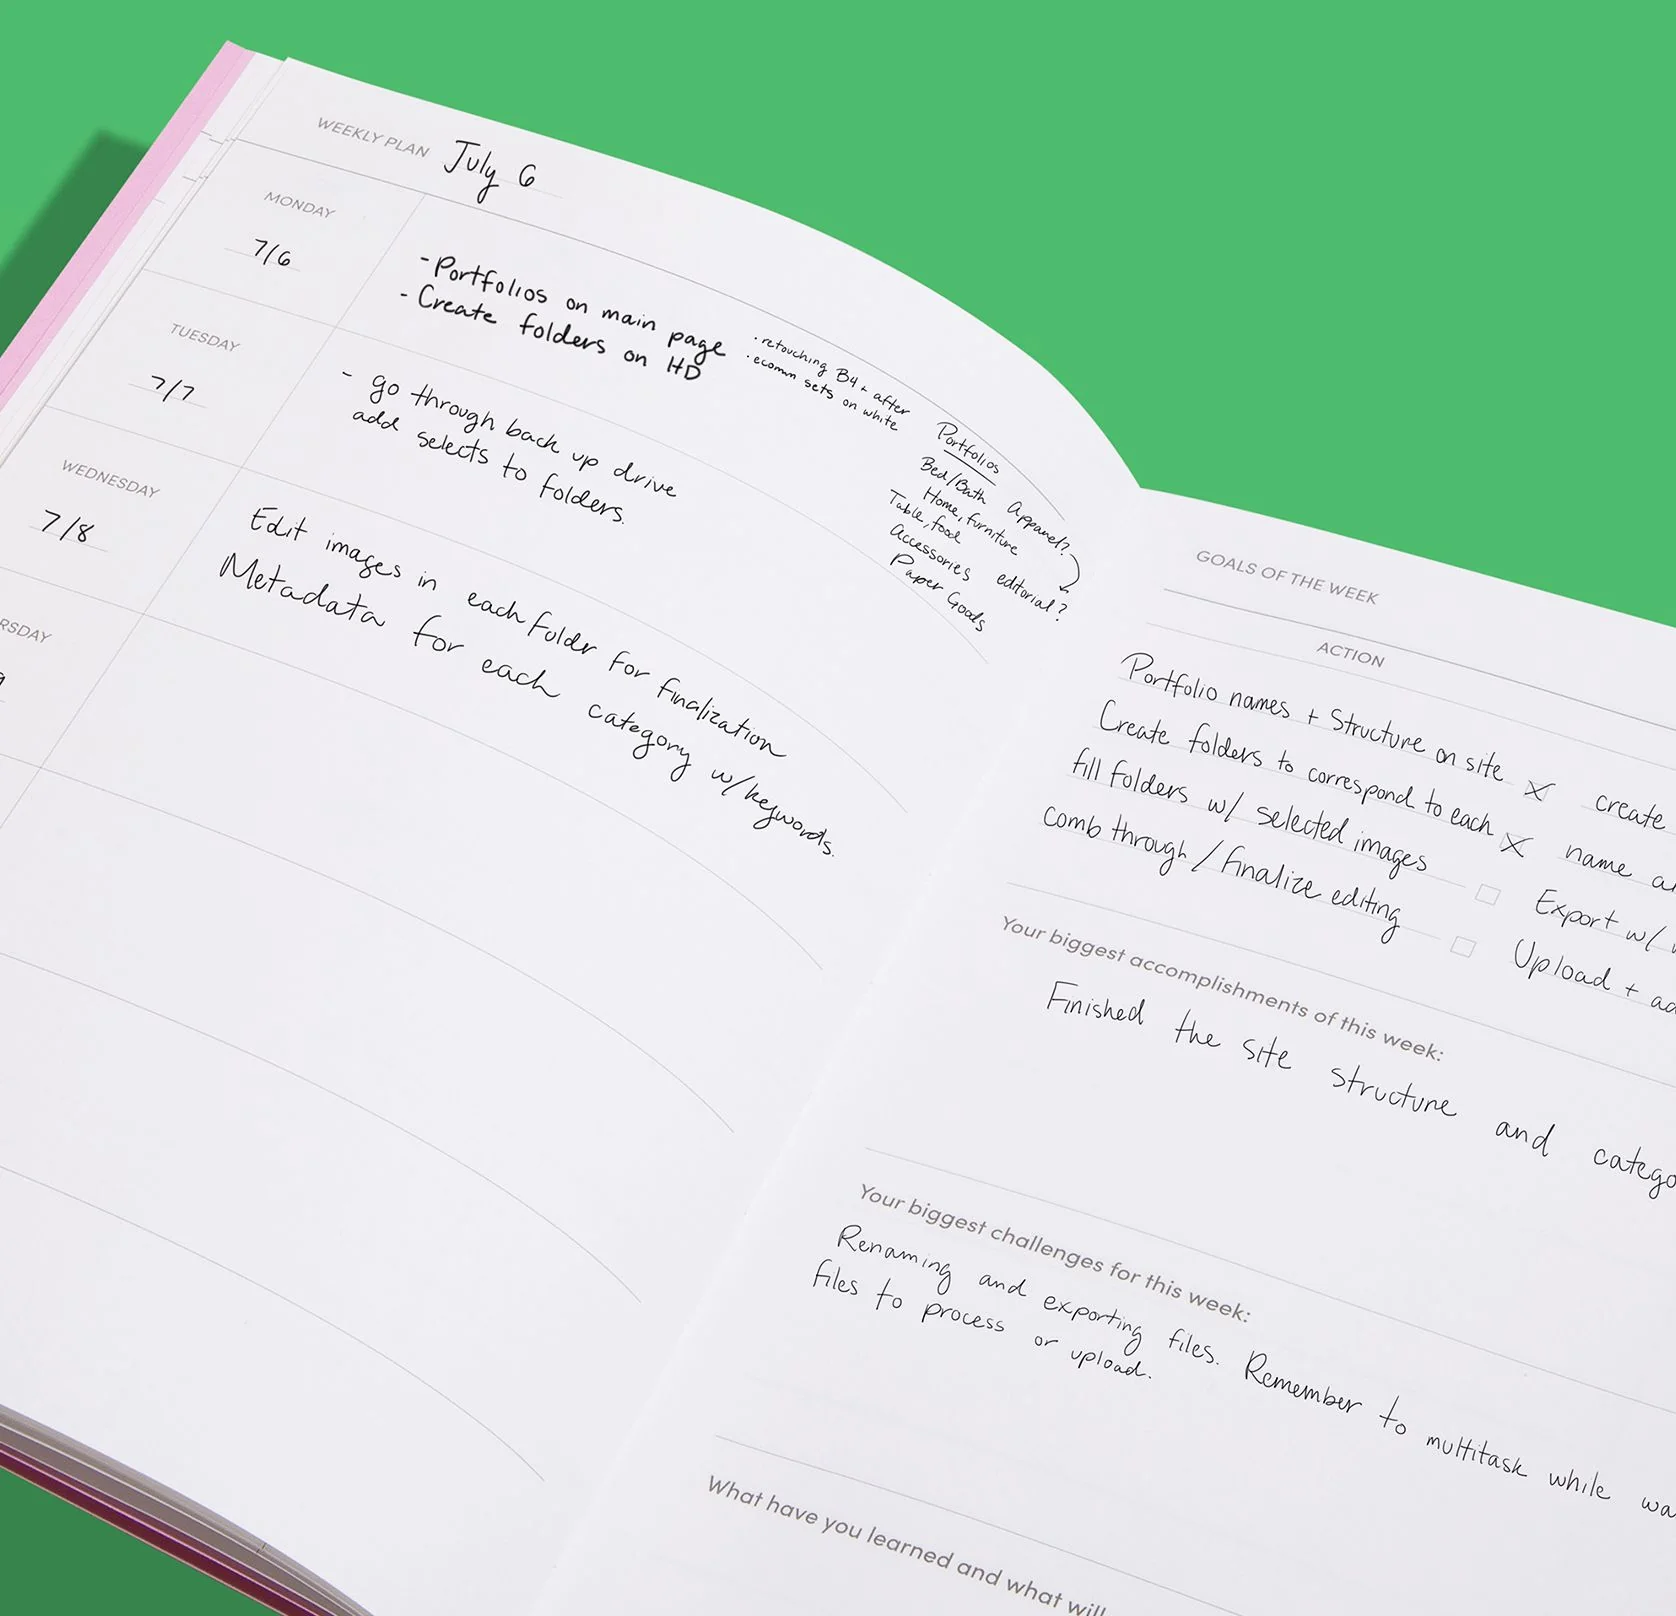 WEEKLY PLAN July 6
MONDAY
7/6
- Portfolios on main page
- Create folders on HD
· retouching B4 + after
· ecomm sets on white
TUESDAY
7/7
- go through back up drive
add selects to folders.
Portfolios
Bed/Bath Apparel?
Home, furniture
Table, food
Accessories editorial?
Paper Goods
WEDNESDAY
7/8
Edit images in each folder for finalization
Metadata for each category w/keywords.
RSDAY
9
GOALS OF THE WEEK
ACTION
Portfolio names + Structure on site X create
Create folders to correspond to each X name
fill folders w/ selected images Export w/
comb through / finalize editing Upload +
Your biggest accomplishments of this week:
Finished the site structure and catego
Your biggest challenges for this week:
Renaming and exporting files. Remember to multitask while wa
files to process or upload.
What have you learned and what will